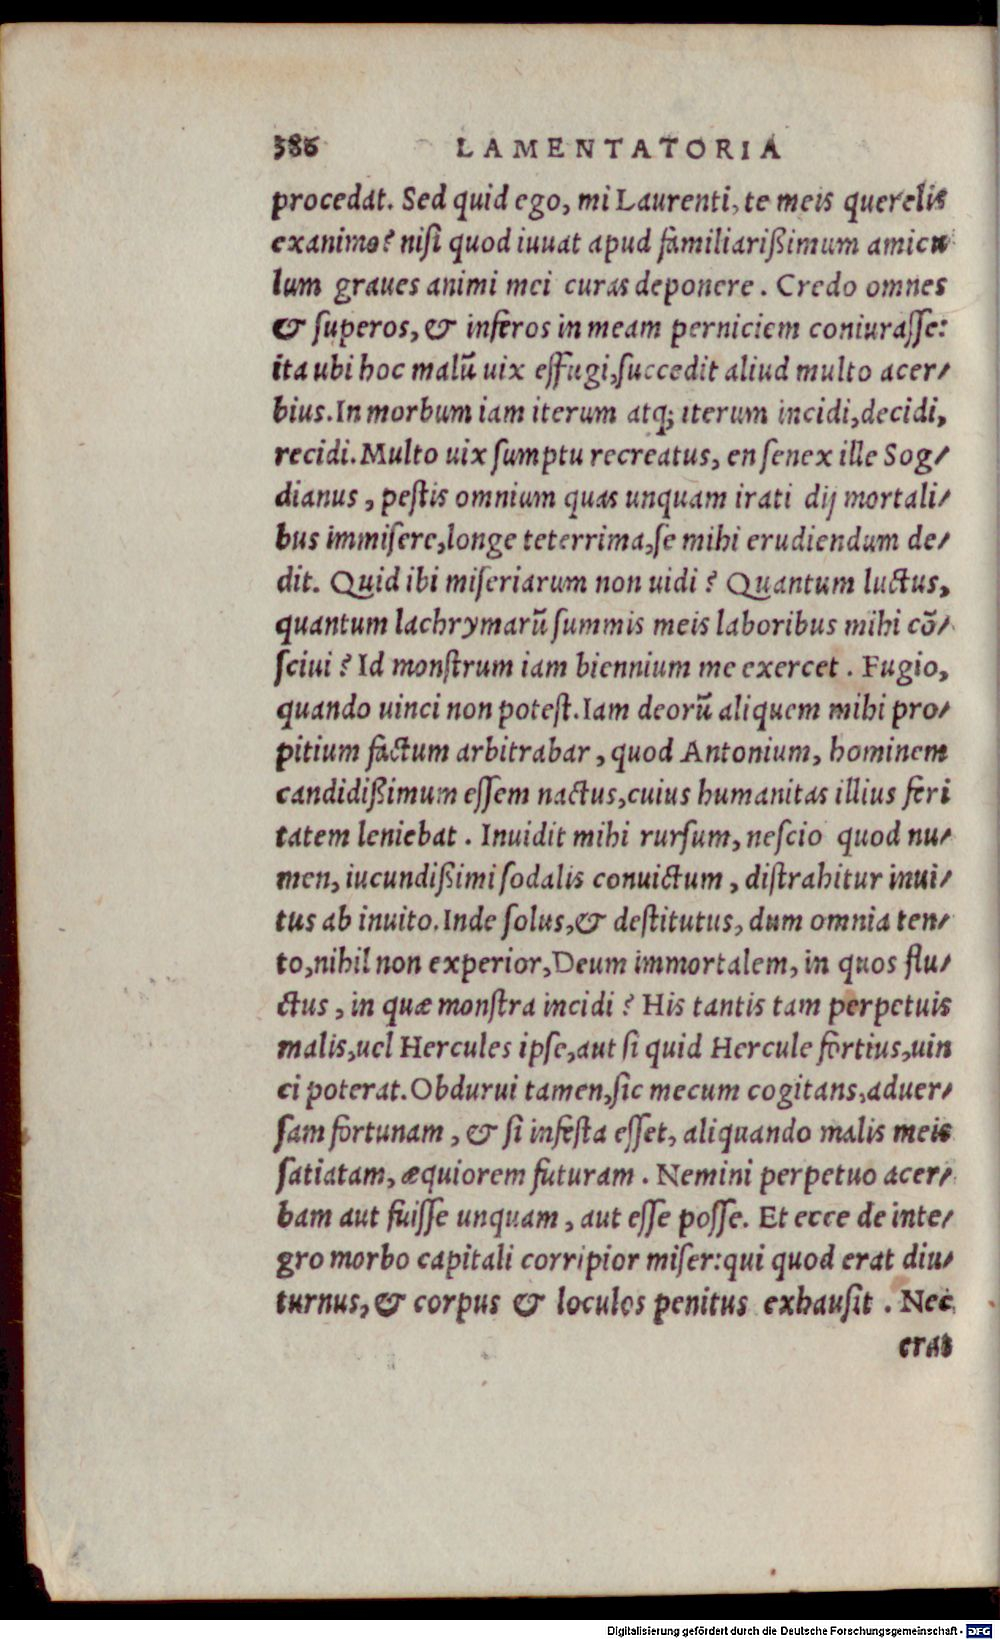 386 LAMENTATORIA
procedat. Sed quid ego, mi Laurenti, te meis querelis
exanimo? niſi quod iuuat apud familiarißimum amicu
lum graues animi mei curas deponere. Credo omnes
& ſuperos, & inferos in meam perniciem coniuraſſe:
ita ubi hoc malũ uix effugi, ſuccedit aliud multo acer/
bius. In morbum iam iterum atq; iterum incidi, decidi,
recidi. Multo uix ſumptu recreatus, en ſenex ille Sog/
dianus, peſtis omnium quas unquam irati dij mortali/
bus immiſere, longe teterrima, ſe mihi erudiendum de/
dit. Quid ibi miſeriarum non uidi? Quantum luctus,
quantum lachrymarũ ſummis meis laboribus mihi cõ/
ſciui? Id monſtrum iam biennium me exercet. Fugio,
quando uinci non poteſt. Iam deorũ aliquem mihi pro/
pitium factum arbitrabar, quod Antonium, hominem
candidißimum eſſem nactus, cuius humanitas illius feri
tatem leniebat. Inuidit mihi rurſum, neſcio quod nu/
men, iucundißimi ſodalis conuictum, diſtrahitur inui/
tus ab inuito. Inde ſolus, & deſtitutus, dum omnia ten/
to, nihil non experior, Deum immortalem, in quos flu/
ctus, in quæ monſtra incidi? His tantis tam perpetuis
malis, uel Hercules ipſe, aut ſi quid Hercule fortius, uin
ci poterat. Obdurui tamen, ſic mecum cogitans, aduer/
ſam fortunam, & ſi infeſta eſſet, aliquando malis meis
ſatiatam, æquiorem futuram. Nemini perpetuo acer/
bam aut fuiſſe unquam, aut eſſe poſſe. Et ecce de inte/
gro morbo capitali corripior miſer: qui quod erat diu/
turnus, & corpus & loculos penitus exhauſit. Nec
erat
Digitalisierung gefördert durch die Deutsche Forschungsgemeinschaft - DFG